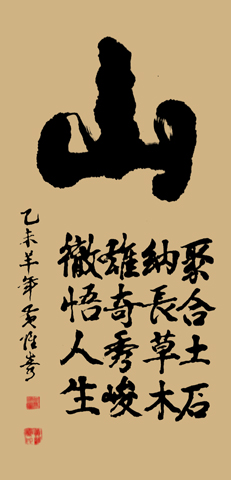 山
聚合土石
納長草木
雄奇秀峻
徹悟人生
乙未羊年